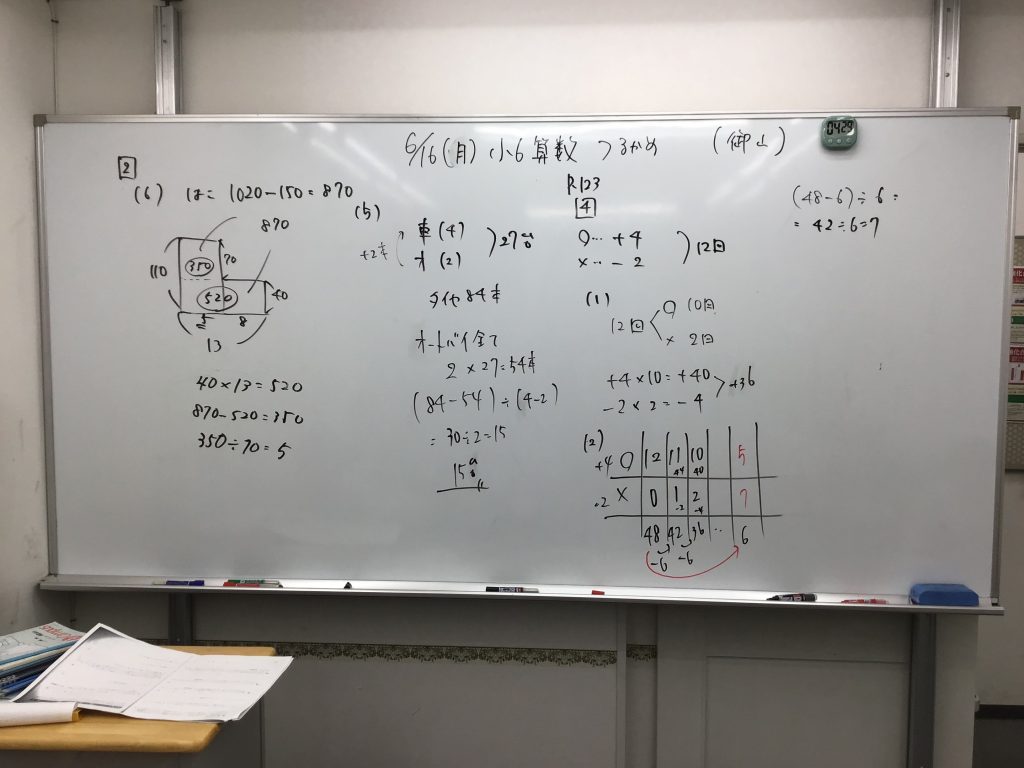 6/16(月) 小6算数 つるかめ (御山)
0429
2
(6) 1日= 1020-150=870
870
350
70
110
520
40
5
8
13
40×13=520
870-520=350
350÷70=5
(5)
+2
車(4)
オ(2)
27台
タイヤ84本
オートバイ全て
2×27=54本
(84-54)÷(4-2)
=30÷2=15
15台
P.123
4
○… +4
×… -2
12回
(1)
12回
○ 10回
× 2回
+4×10=+40
-2×2=-4
+36
(2)
+4 ○ 12 11 10 5
+4 40
-2 × 0 1 2 7
-2 -4
48 42 36 … 6
-6 -6
(48-6)÷6=
=42÷6=7